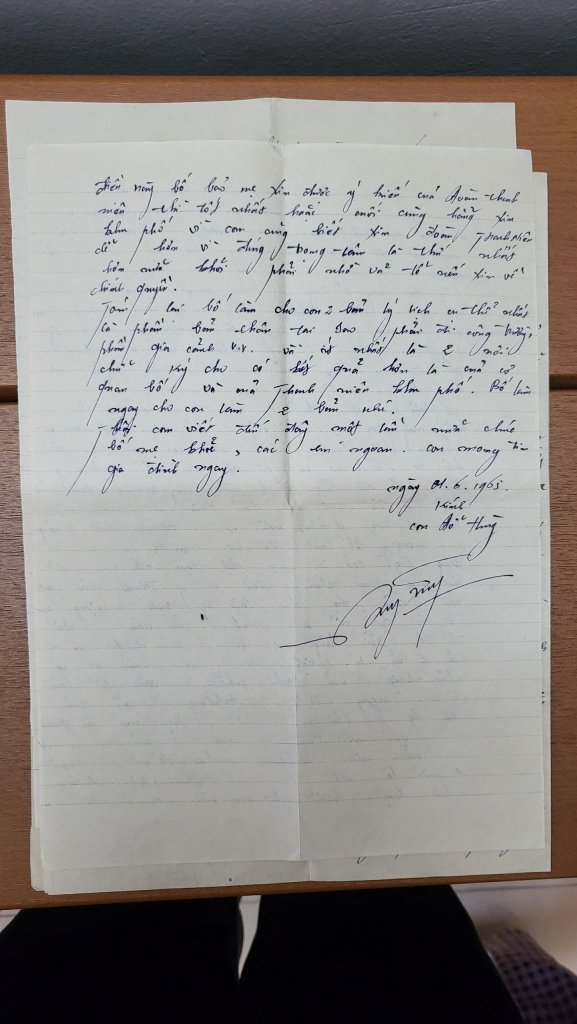 điều này bố bảo mẹ xin được ý kiến của đoàn thanh
niên thì tốt nhất hoặc mỗi cùng hàng xin
khu phố vì con cũng biết xin đoàn Thanh niên
dễ hơn vì đúng trong tâm là thứ nhất
hơn nữa khỏi phải nhờ vả tốt nếu xin về
chính quyền.
Tóm lại bố làm cho con 2 bản lý lịch thứ nhất
là phải bản thân tại sao phải đi công trường,
phải gia cảnh v.v. và ít nhất là 2 nơi
chữ ký cho có kết quả hơn là của cơ
quan bố và của Thanh niên khu phố. Bố làm
ngay cho con làm 2 bản nhé.
Thôi con viết đến đây một lần nữa chúc
bố mẹ khoẻ, các em ngoan. con mong tin
gia đình ngay.
ngày 01.6.1965.
Kính
con Đỗ Hùng